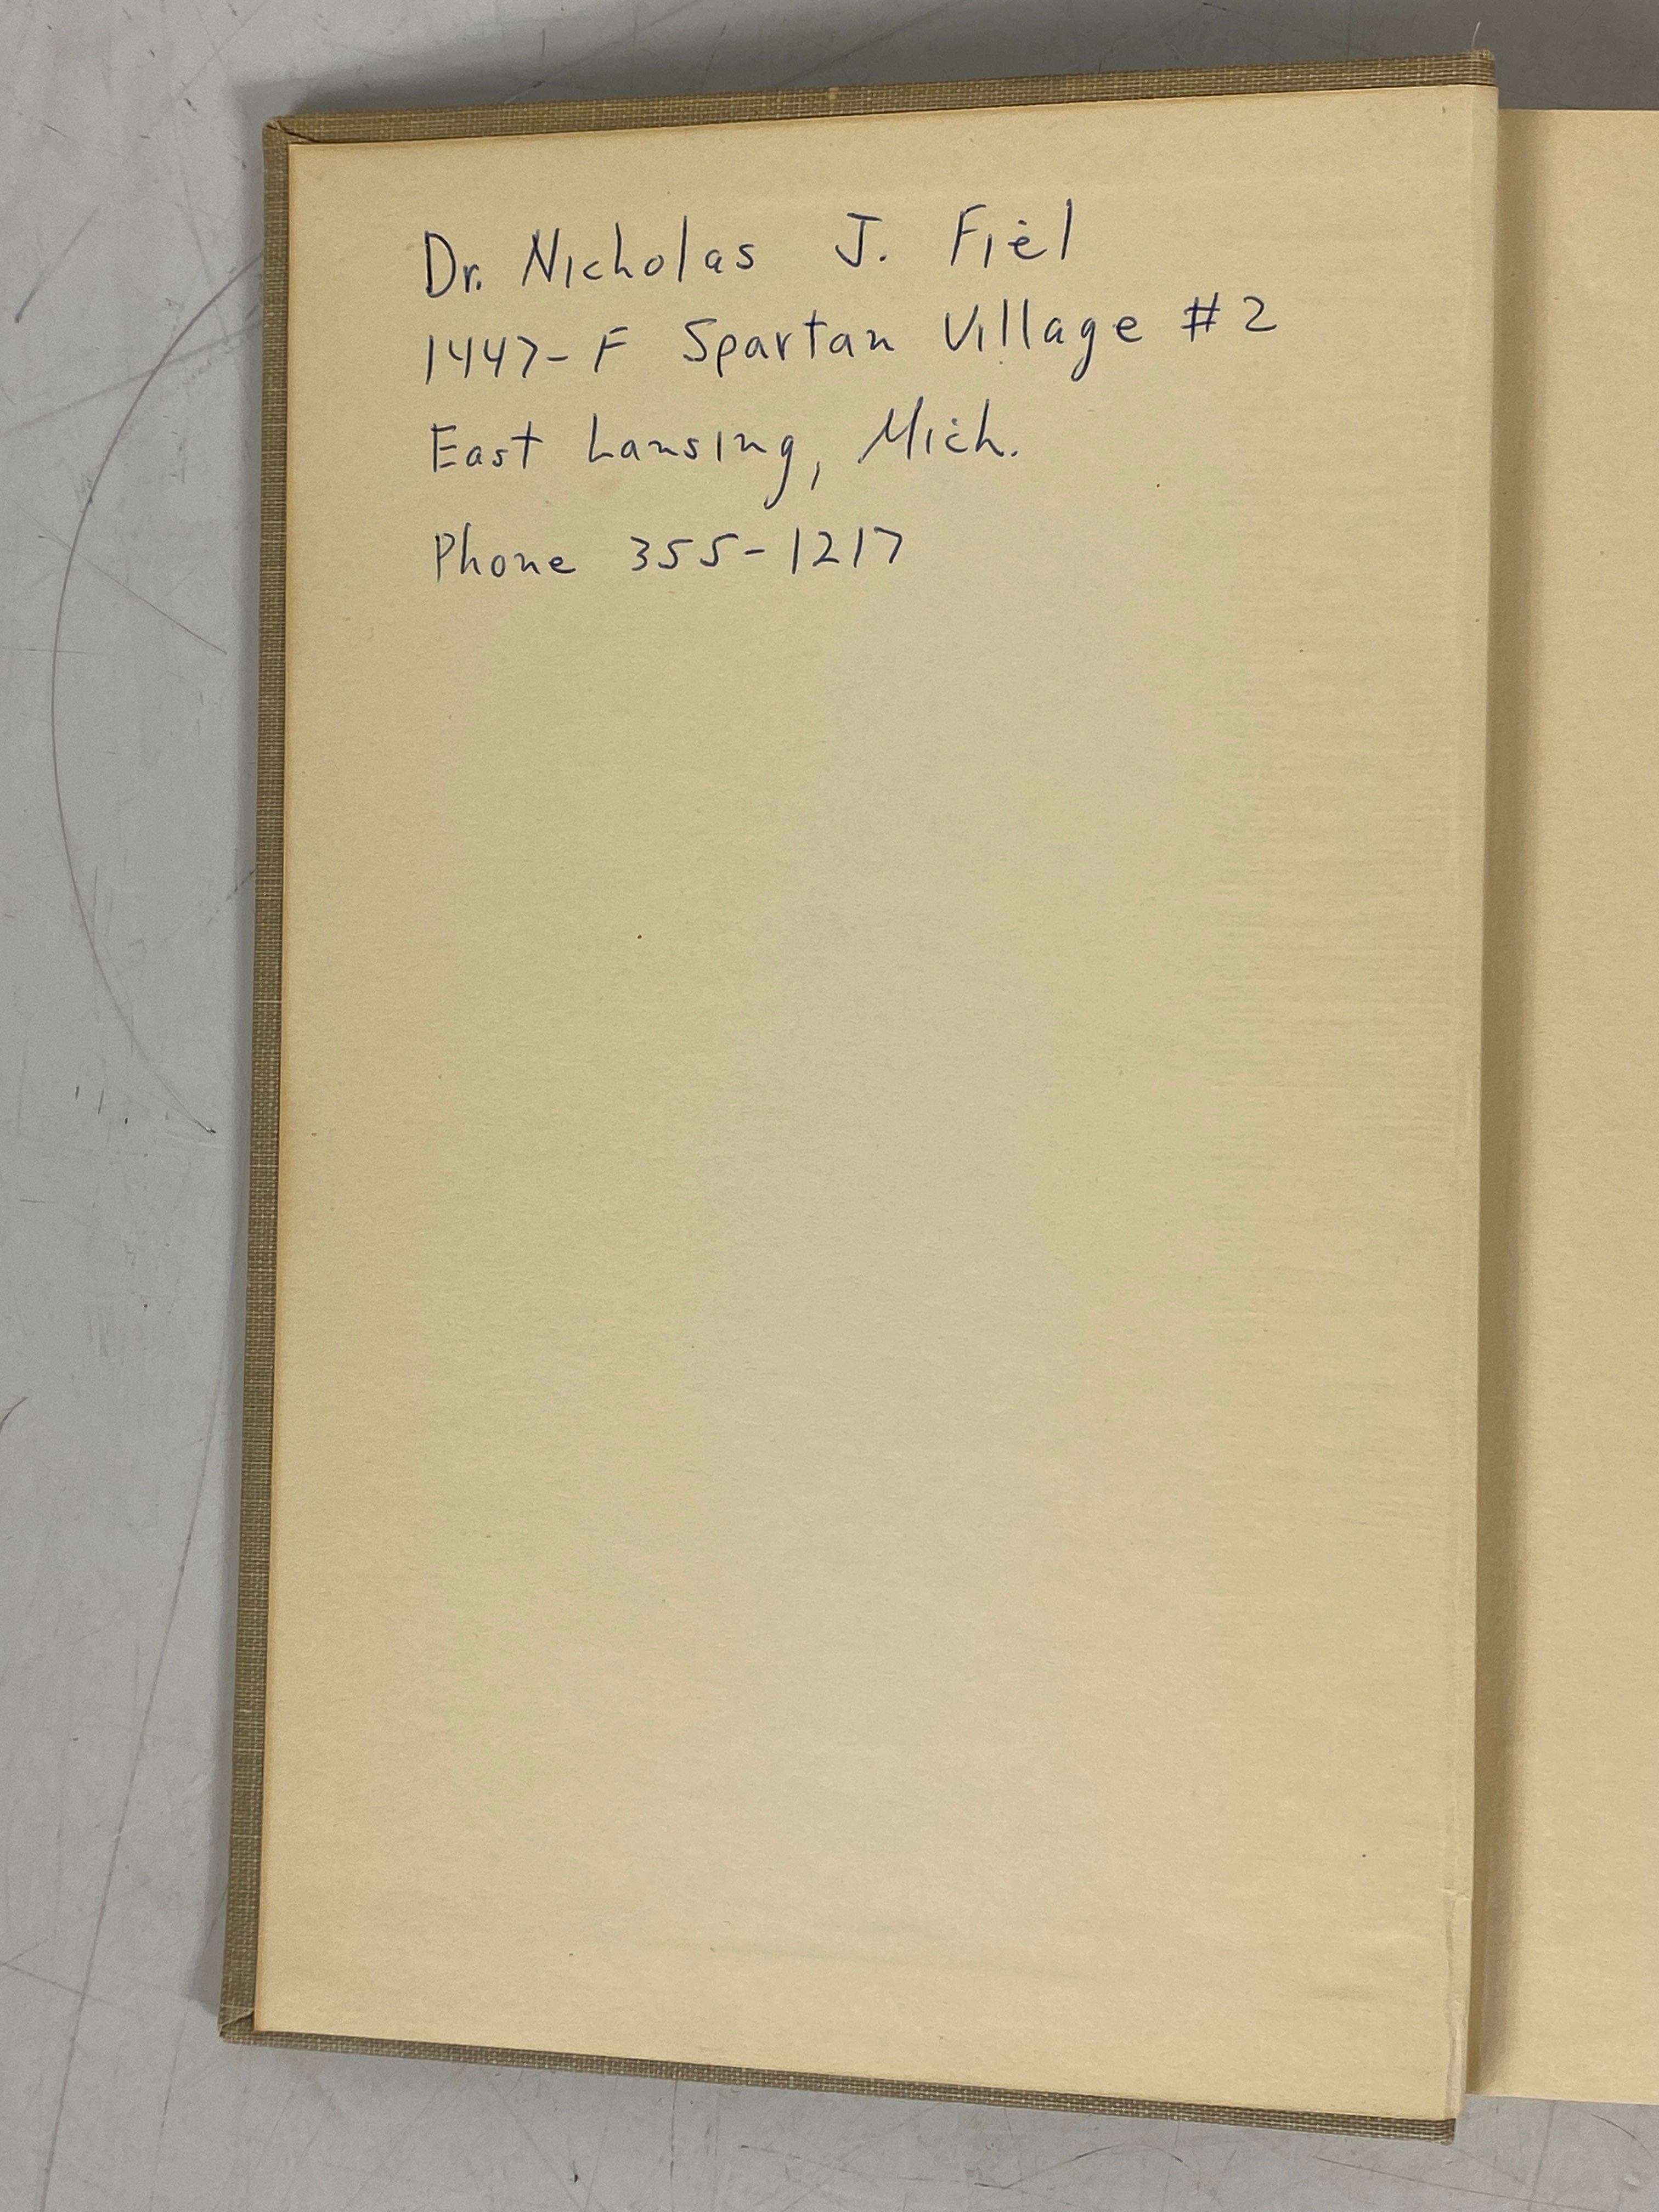 Dr. Nicholas J. Fiel
1447-F Spartan Village #2
East Lansing, Mich.
Phone 355-1217